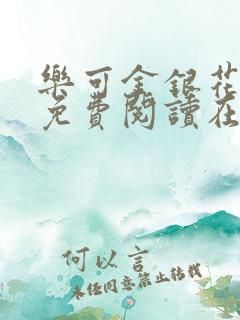 樂可金銀花
免費閱讀在
何以言
未經同意禁止轉載